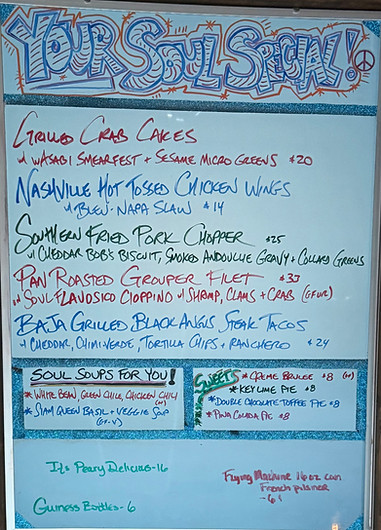 YOUR SOUL SPECIAL!
GRILLED CRAB CAKES
w/ WASABI SMEARFEST + SESAME MICRO GREENS $20
NASHVILLE HOT TOSSED CHICKEN WINGS
w/ BLEU-NAPA SLAW $14
SOUTHERN FRIED PORK CHOPPER $25
w/ CHEDDAR BOB'S BISCUIT, SMOKED ANDOUILLE GRAVY + COLLARD GREENS
PAN ROASTED GROUPER FILET $33
w/ SOUL FLANOSICO CIOPPINO w/ SHRIMP, CLAMS + CRAB
BAJA GRILLED BLACK ANGUS STEAK TACOS
w/ CHEDDAR, CHIMI VERDE, TORTILLA CHIPS + RANCHERO $24
SOUL SOUPS FOR YOU!
* WHITE BEAN GREEN CHILI, CHICKEN CHILI
* SIAM QUEEN BASIL + VEGGIE SOUP
(GF-V)
SWEETS
* CREME BRULEE $8
* KEY LIME PIE $8
* DOUBLE CHOCOLATE TOFFEE PIE $8
* PINA COLADA PIE $8
It's Peary Delicious-16
Flying Machine 16 oz can
French pilsner
-6
Guiness Bottles-6